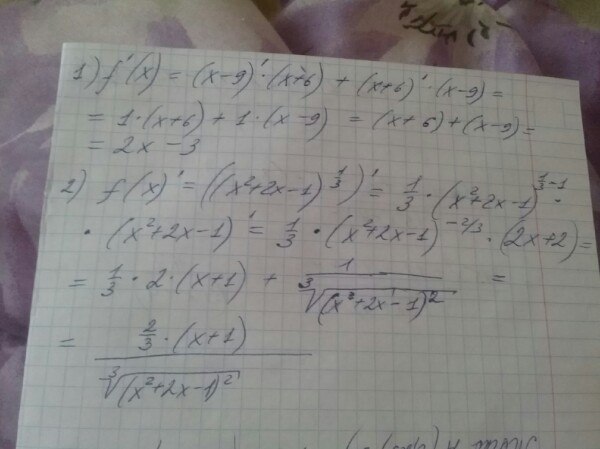 1) f'(x) = (x-9)'·(x+6) + (x+6)'·(x-9) =
= 1·(x+6) + 1·(x-9) = (x+6)+(x-9) =
= 2x - 3
2) f(x)' = ((x²+2x-1)^(1/3))' = 1/3 · (x²+2x-1)^(1/3-1) ·
· (x²+2x-1)' = 1/3 · (x²+2x-1)^(-2/3) · (2x+2) =
= 1/3 · 2 · (x+1) + 1/∛(x²+2x-1)² =
= 2/3 · (x+1) / ∛(x²+2x-1)²